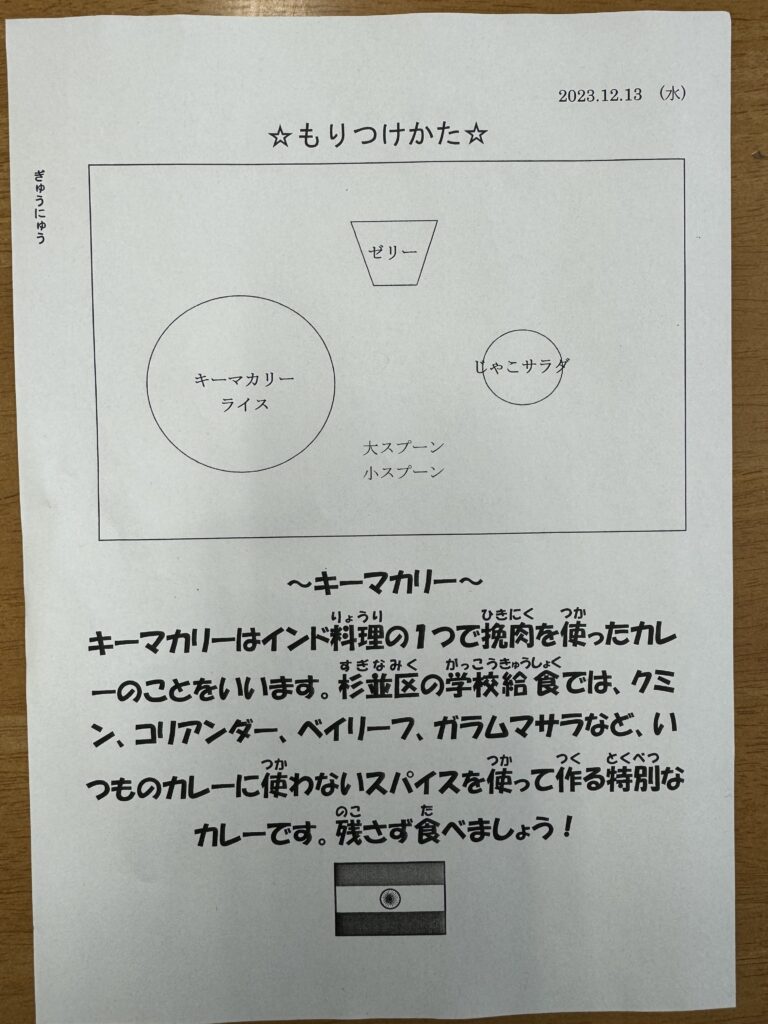 2023.12.13 (水)
☆もりつけかた☆
ぎゅうにゅう
ゼリー
キーマカリー
ライス
じゃこサラダ
大スプーン
小スプーン
～キーマカリー～
キーマカリーはインド料理の1つで挽肉を使ったカレ
りょうり ひきにく つか
ーのことをいいます。杉並区の学校給食では、クミ
すぎなみく がっこうきゅうしょく
ン、コリアンダー、ベイリーフ、ガラムマサラなど、い
つものカレーに使わないスパイスを使って作る特別な
つか つか つく とくべつ
カレーです。残さず食べましょう！
のこ た